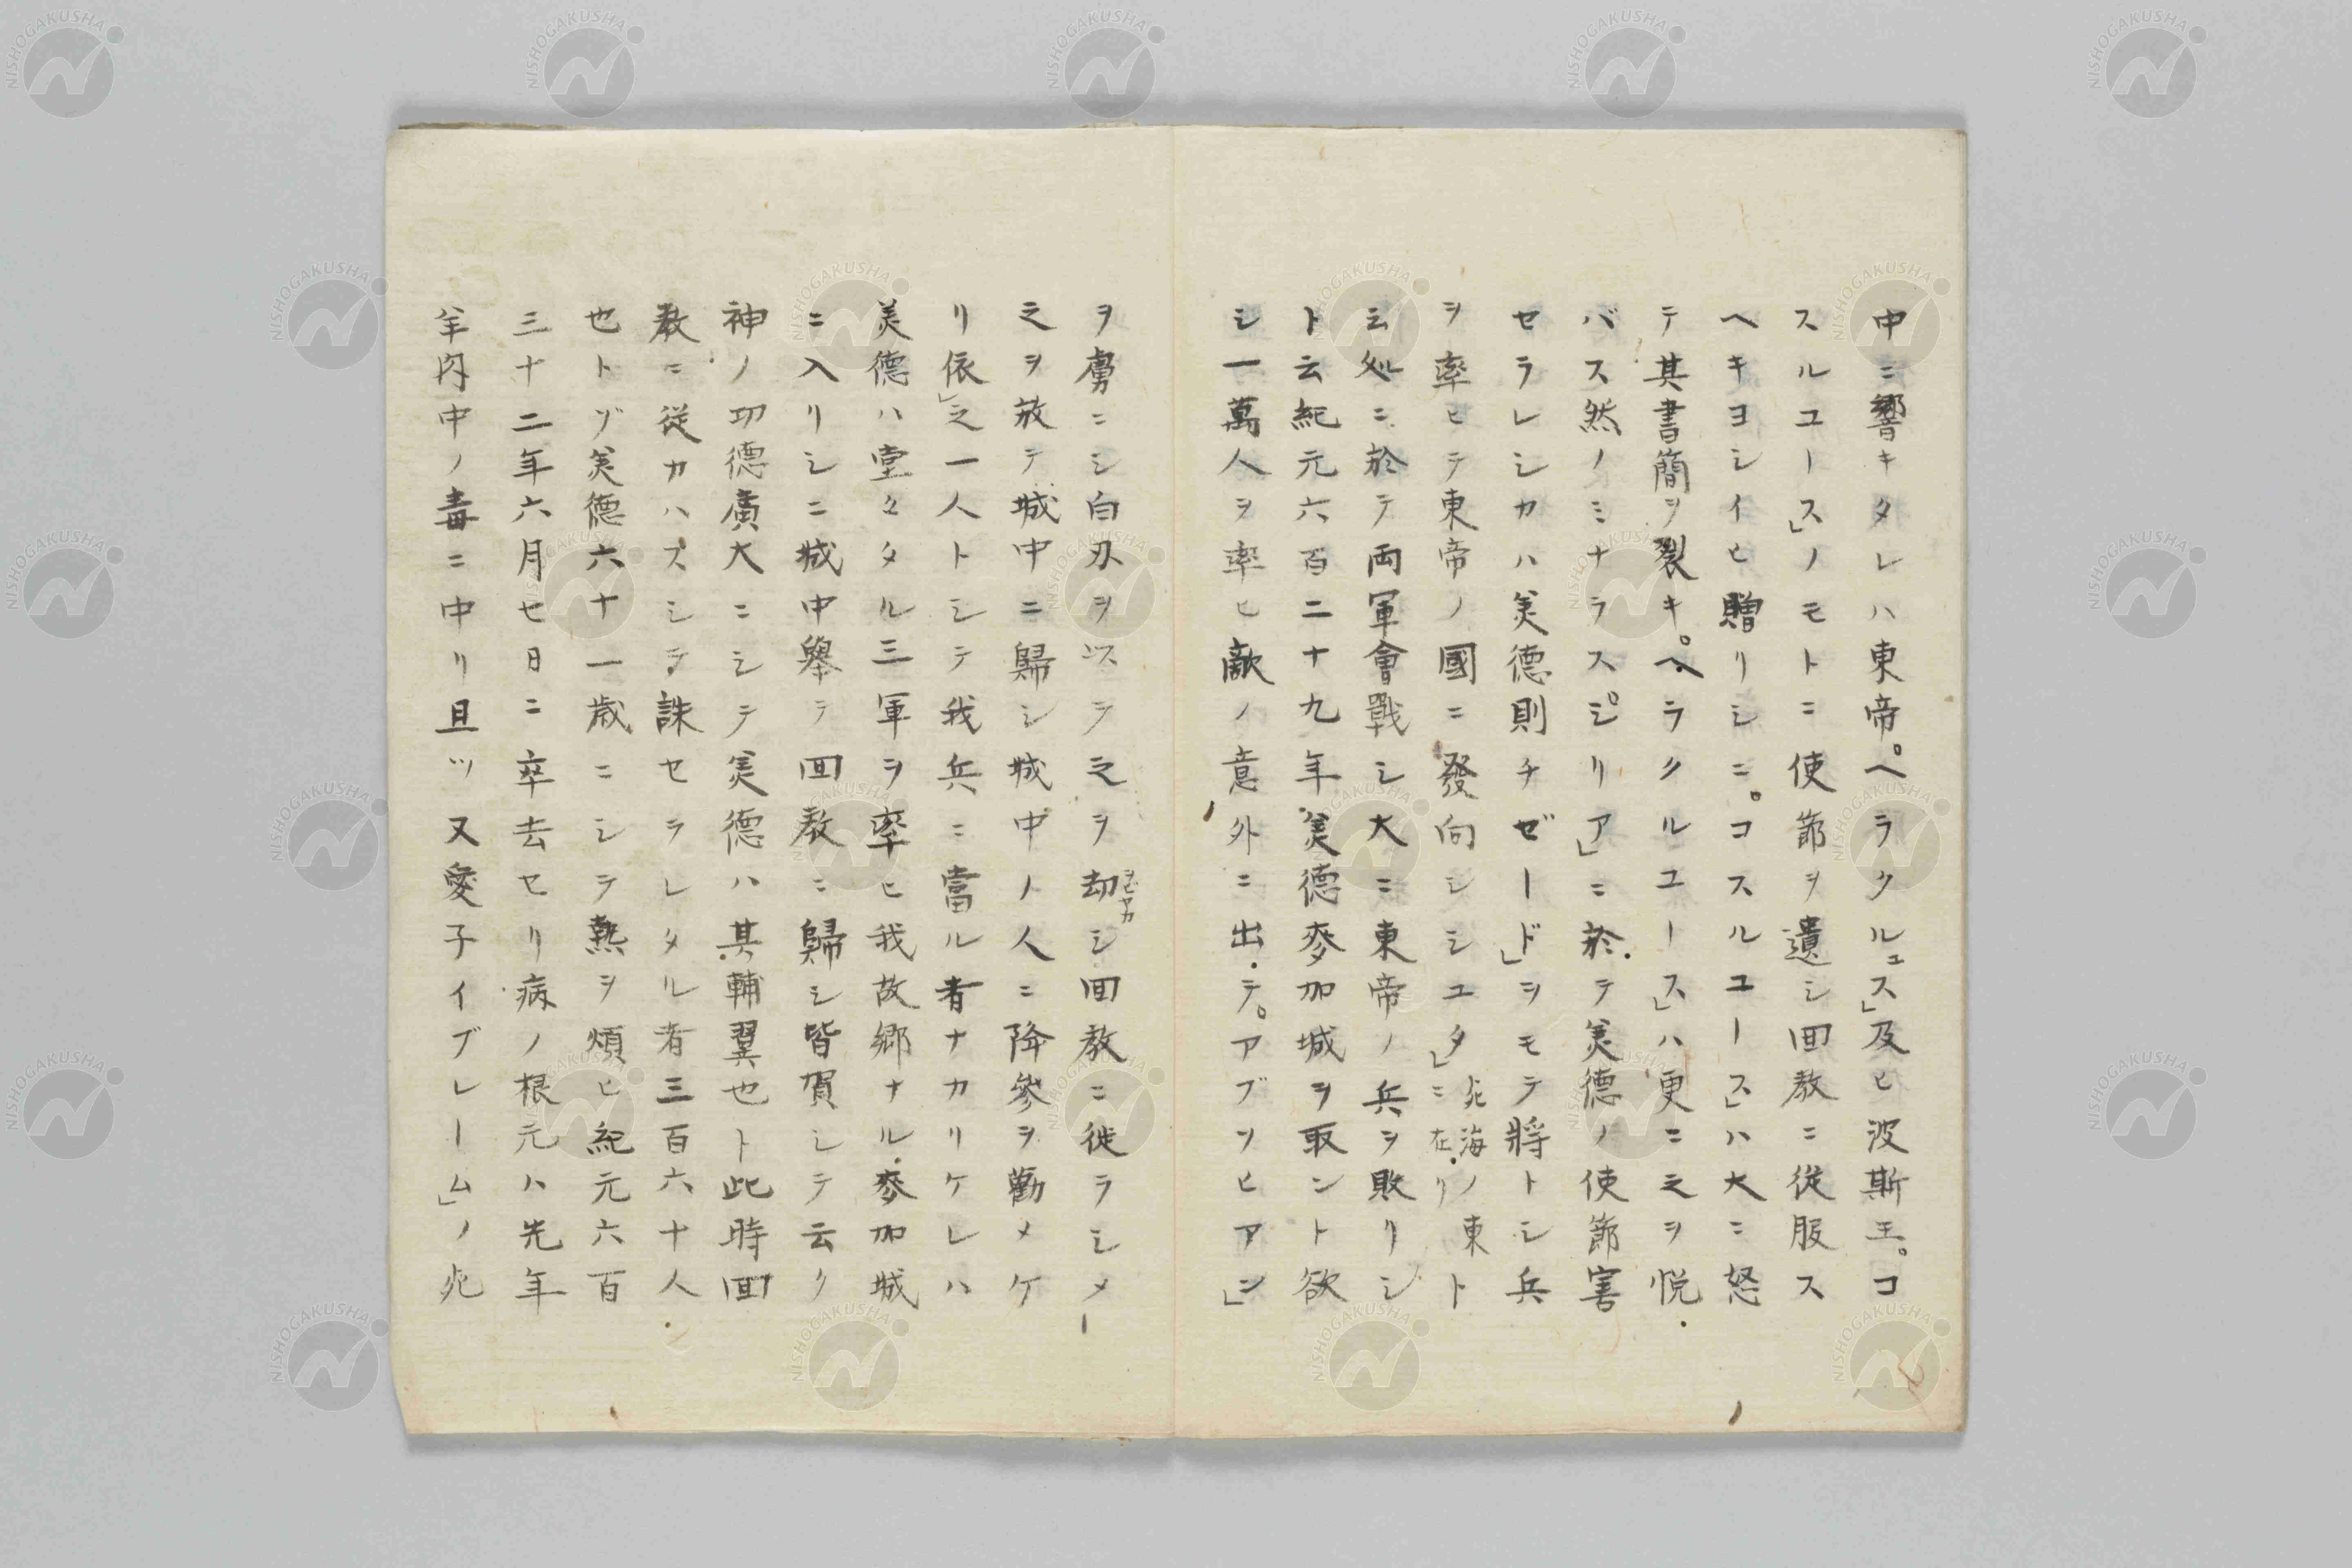 中ニ響キタレハ東帝。ヘラクルユス」及ヒ波斯王。コ
スルユース」ノモトニ使節ヲ遺シ回教ニ従服ス
ヘキヨシイヒ贈リシニ。コスルユース」ハ大ニ怒
テ其書簡ヲ裂キ。ヘラクルユース」ハ更ニ之ヲ悦
バス然ノミナラス。シリア」ニ於テ美徳ノ使節害
セラレシカハ美徳則チゼード」ヲモテ將トシ兵
ヲ率ヒテ東帝ノ國ニ發向シシユタ」死海ノ東ニ在リト
云処ニ於テ両軍會戰シ大ニ東帝ノ兵ヲ敗リシ
ト云紀元六百二十九年美徳麥加城ヲ取ント欲
シ一萬人ヲ率ヒ敵ノ意外ニ出テ。アブソヒアン」
ヲ虜ニシ白刃ヲ以ラ之ヲ却シ回教ニ従ラシメ
之ヲ放テ城中ニ歸シ城中ノ人ニ降參ヲ勸メケ
リ依」之一人トシテ我兵ニ當ル者ナカリケレハ
美徳ハ堂々タル三軍ヲ率ヒ我故郷ナル麥加城
ニ入リシニ城中舉テ回教ニ歸シ皆賀シテ云ク
神ノ功德廣大ニシテ美德ハ其輔翼也ト此時回
教ニ從カハスシテ誅セラレタル者三百六十人
也トゾ美徳六十一歳ニシテ熱ヲ煩ヒ紀元六百
三十二年六月七日ニ卒去セリ病ノ根元ハ先年
羊肉中ノ毒ニ中リ且ツ又愛子イブレーム」ノ死